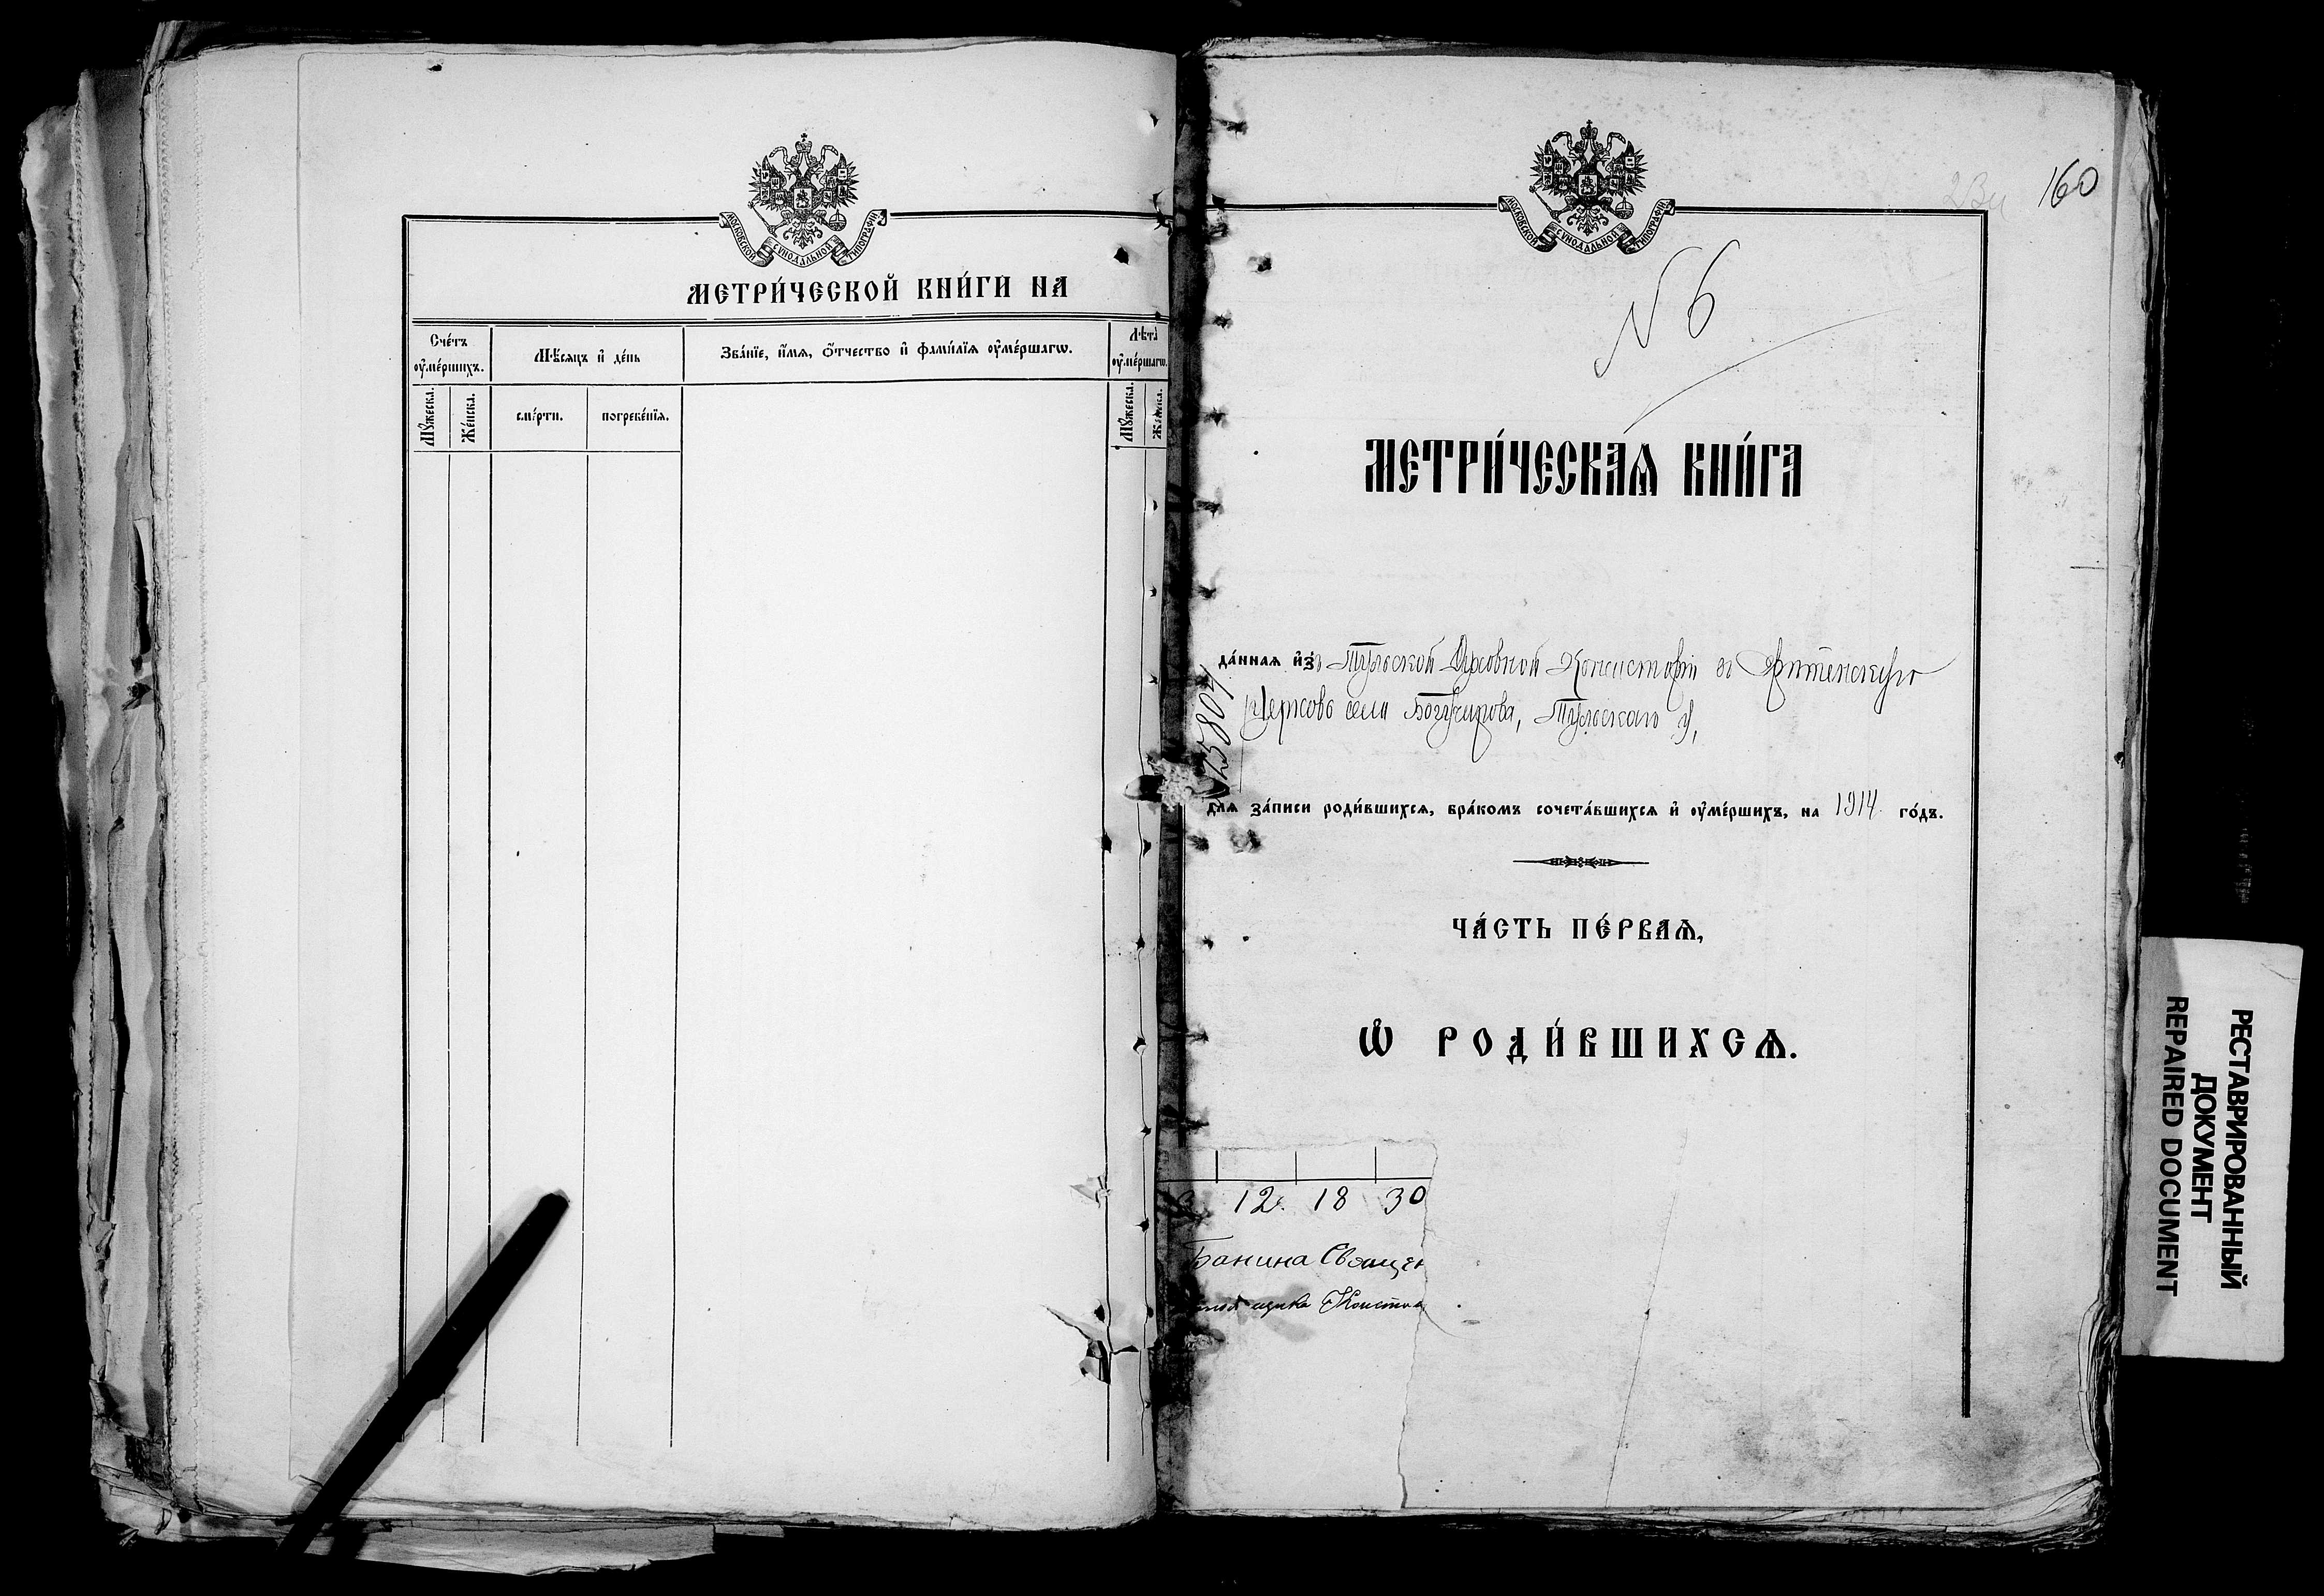 МОСКОВСКОЙ СѴНОДАЛЬНОЙ ТИПОГРАФІИ
МЕТРИ́ЧЕСКОЙ КНИ́ГИ НА
Сче́тъ ᲂу҆ме́ршихъ.
Мѣ́сяцъ и҆ де́нь
Зва́нїе, и҆́мѧ, ѻ҆́тчество и҆ фами́лїѧ ᲂу҆ме́ршагѡ.
Лѣта̀ ᲂу҆ме́ршагѡ.
Мꙋ́жеска.
Же́нска.
сме́рти.
погребе́нїѧ.
Мꙋ́жеска.
Же́нска.
160
МОСКОВСКОЙ СѴНОДАЛЬНОЙ ТИПОГРАФІИ
N 6
МЕТРИ́ЧЕСКАѦ КНИ́ГА
да́ннаѧ и҆зъ Тульской Духовной Консисторіи въ
Церковь села Богучарова, Тульскаго у,
25804
длѧ за́писи роди́вшихсѧ, бра́комъ сочета́вшихсѧ и҆ ᲂу҆ме́ршихъ, на 1914 го́дъ.
ЧА́СТЬ ПЕ́РВАѦ,
Ѡ҆ РОДИ́ВШИХСѦ.
12. 18 30
Банина Священ
РЕСТАВРИРОВАННЫЙ
ДОКУМЕНТ
REPAIRED DOCUMENT